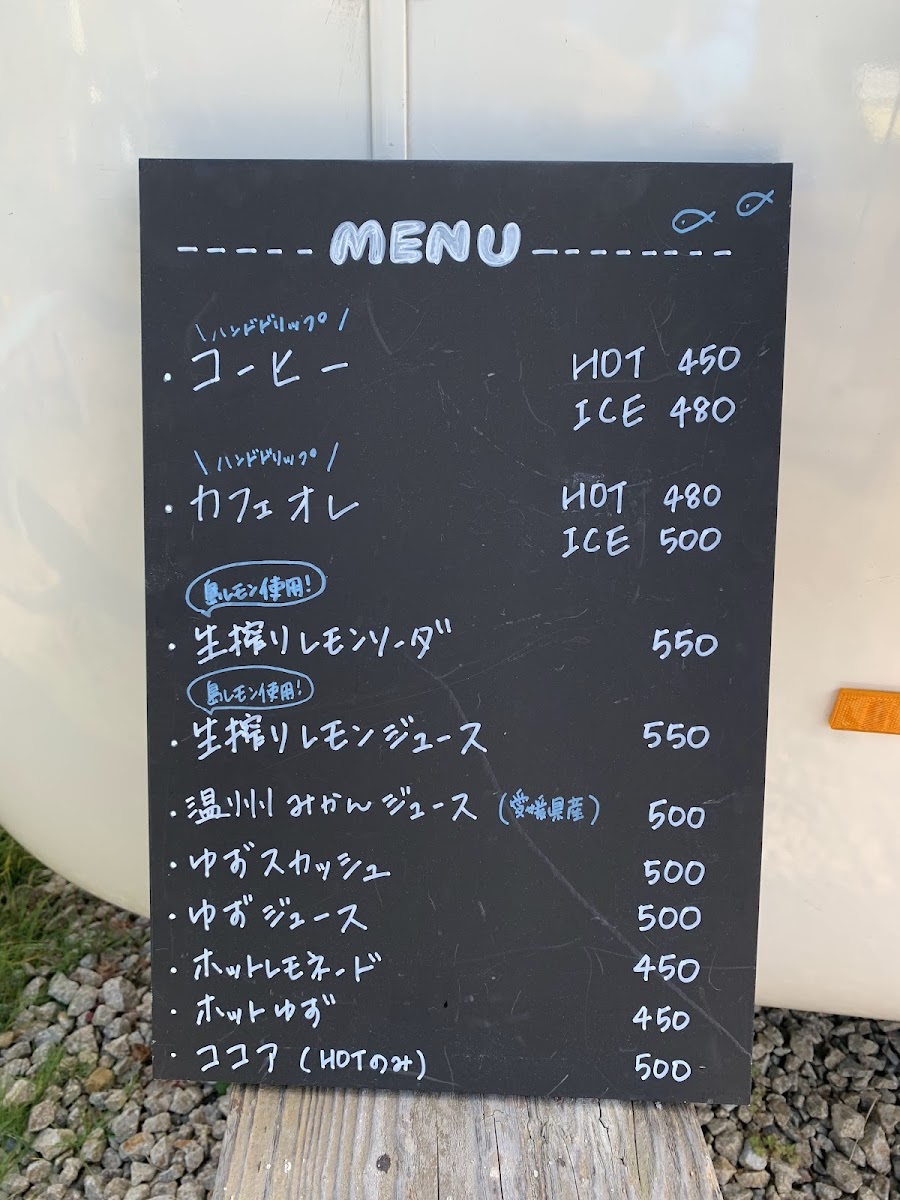 -----MENU--------
\ハンドドリップ/
・コーヒー HOT 450
ICE 480
\ハンドドリップ/
・カフェオレ HOT 480
ICE 500
島レモン使用!
・生搾りレモンソーダ 550
島レモン使用!
・生搾りレモンジュース 550
・温州みかんジュース(愛媛県産) 500
・ゆずスカッシュ 500
・ゆずジュース 500
・ホットレモネード 450
・ホットゆず 450
・ココア(HOTのみ) 500